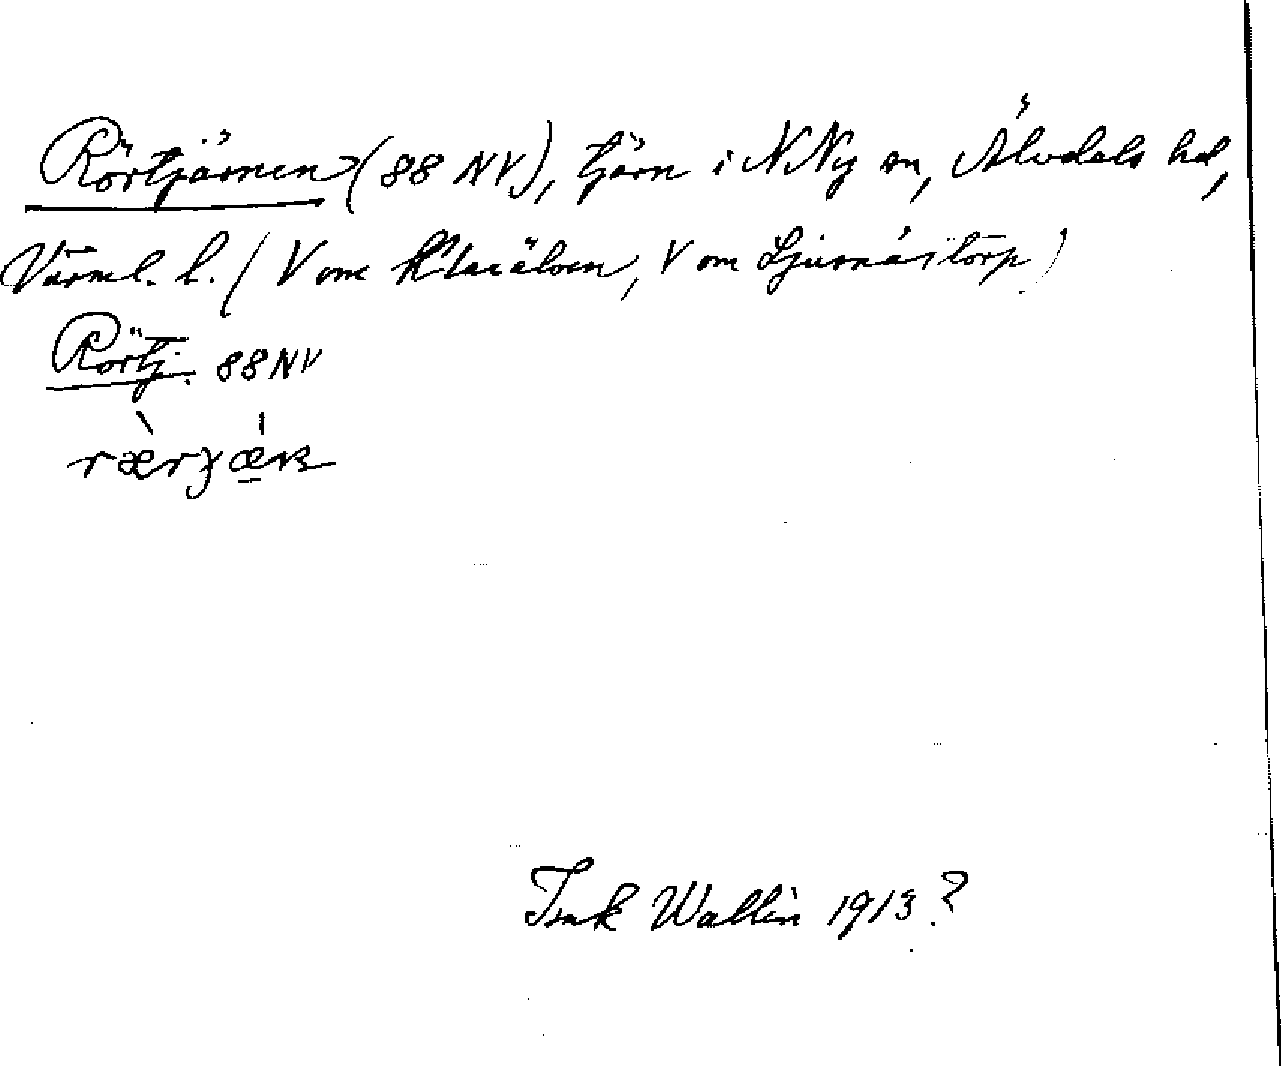 Rörtjärnen (88 NV), tjärn i N Ny sn, Älvdals hd,
Värml. l. (V om Klarälven, V om Ljusnästorp)
Rörtj. 88 NV
Isak Wallin 1913?